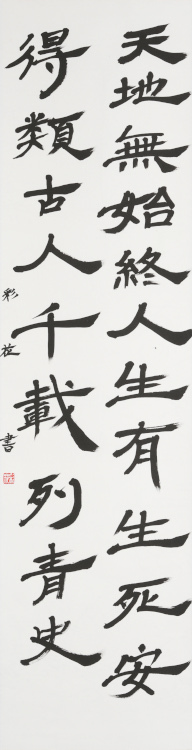 天地無始終人生有生死安
得類古人千載列青史
彩書